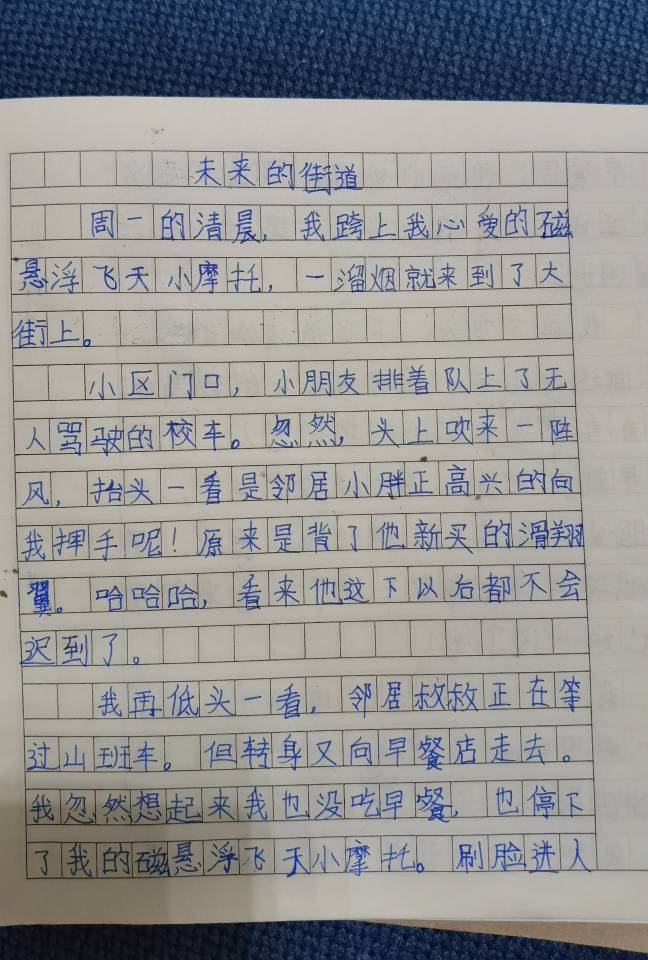 未来的街道
周一的清晨，我跨上我心爱的磁
悬浮飞天小摩托，一溜烟就来到了大
街上。
小区门口，小朋友排着队上了无
人驾驶的校车。忽然，头上吹来一阵
风，抬头一看是邻居小胖正高兴的向
我押手呢！原来是背了他新买的滑翔
翼。哈哈哈，看来他这下以后都不会
迟到了。
我再低头一看，邻居叔叔正在等
过山班车。但转身又向早餐店走去。
我忽然想起来我也没吃早餐，也停下
了我的磁悬浮飞天小摩托。刷脸进人